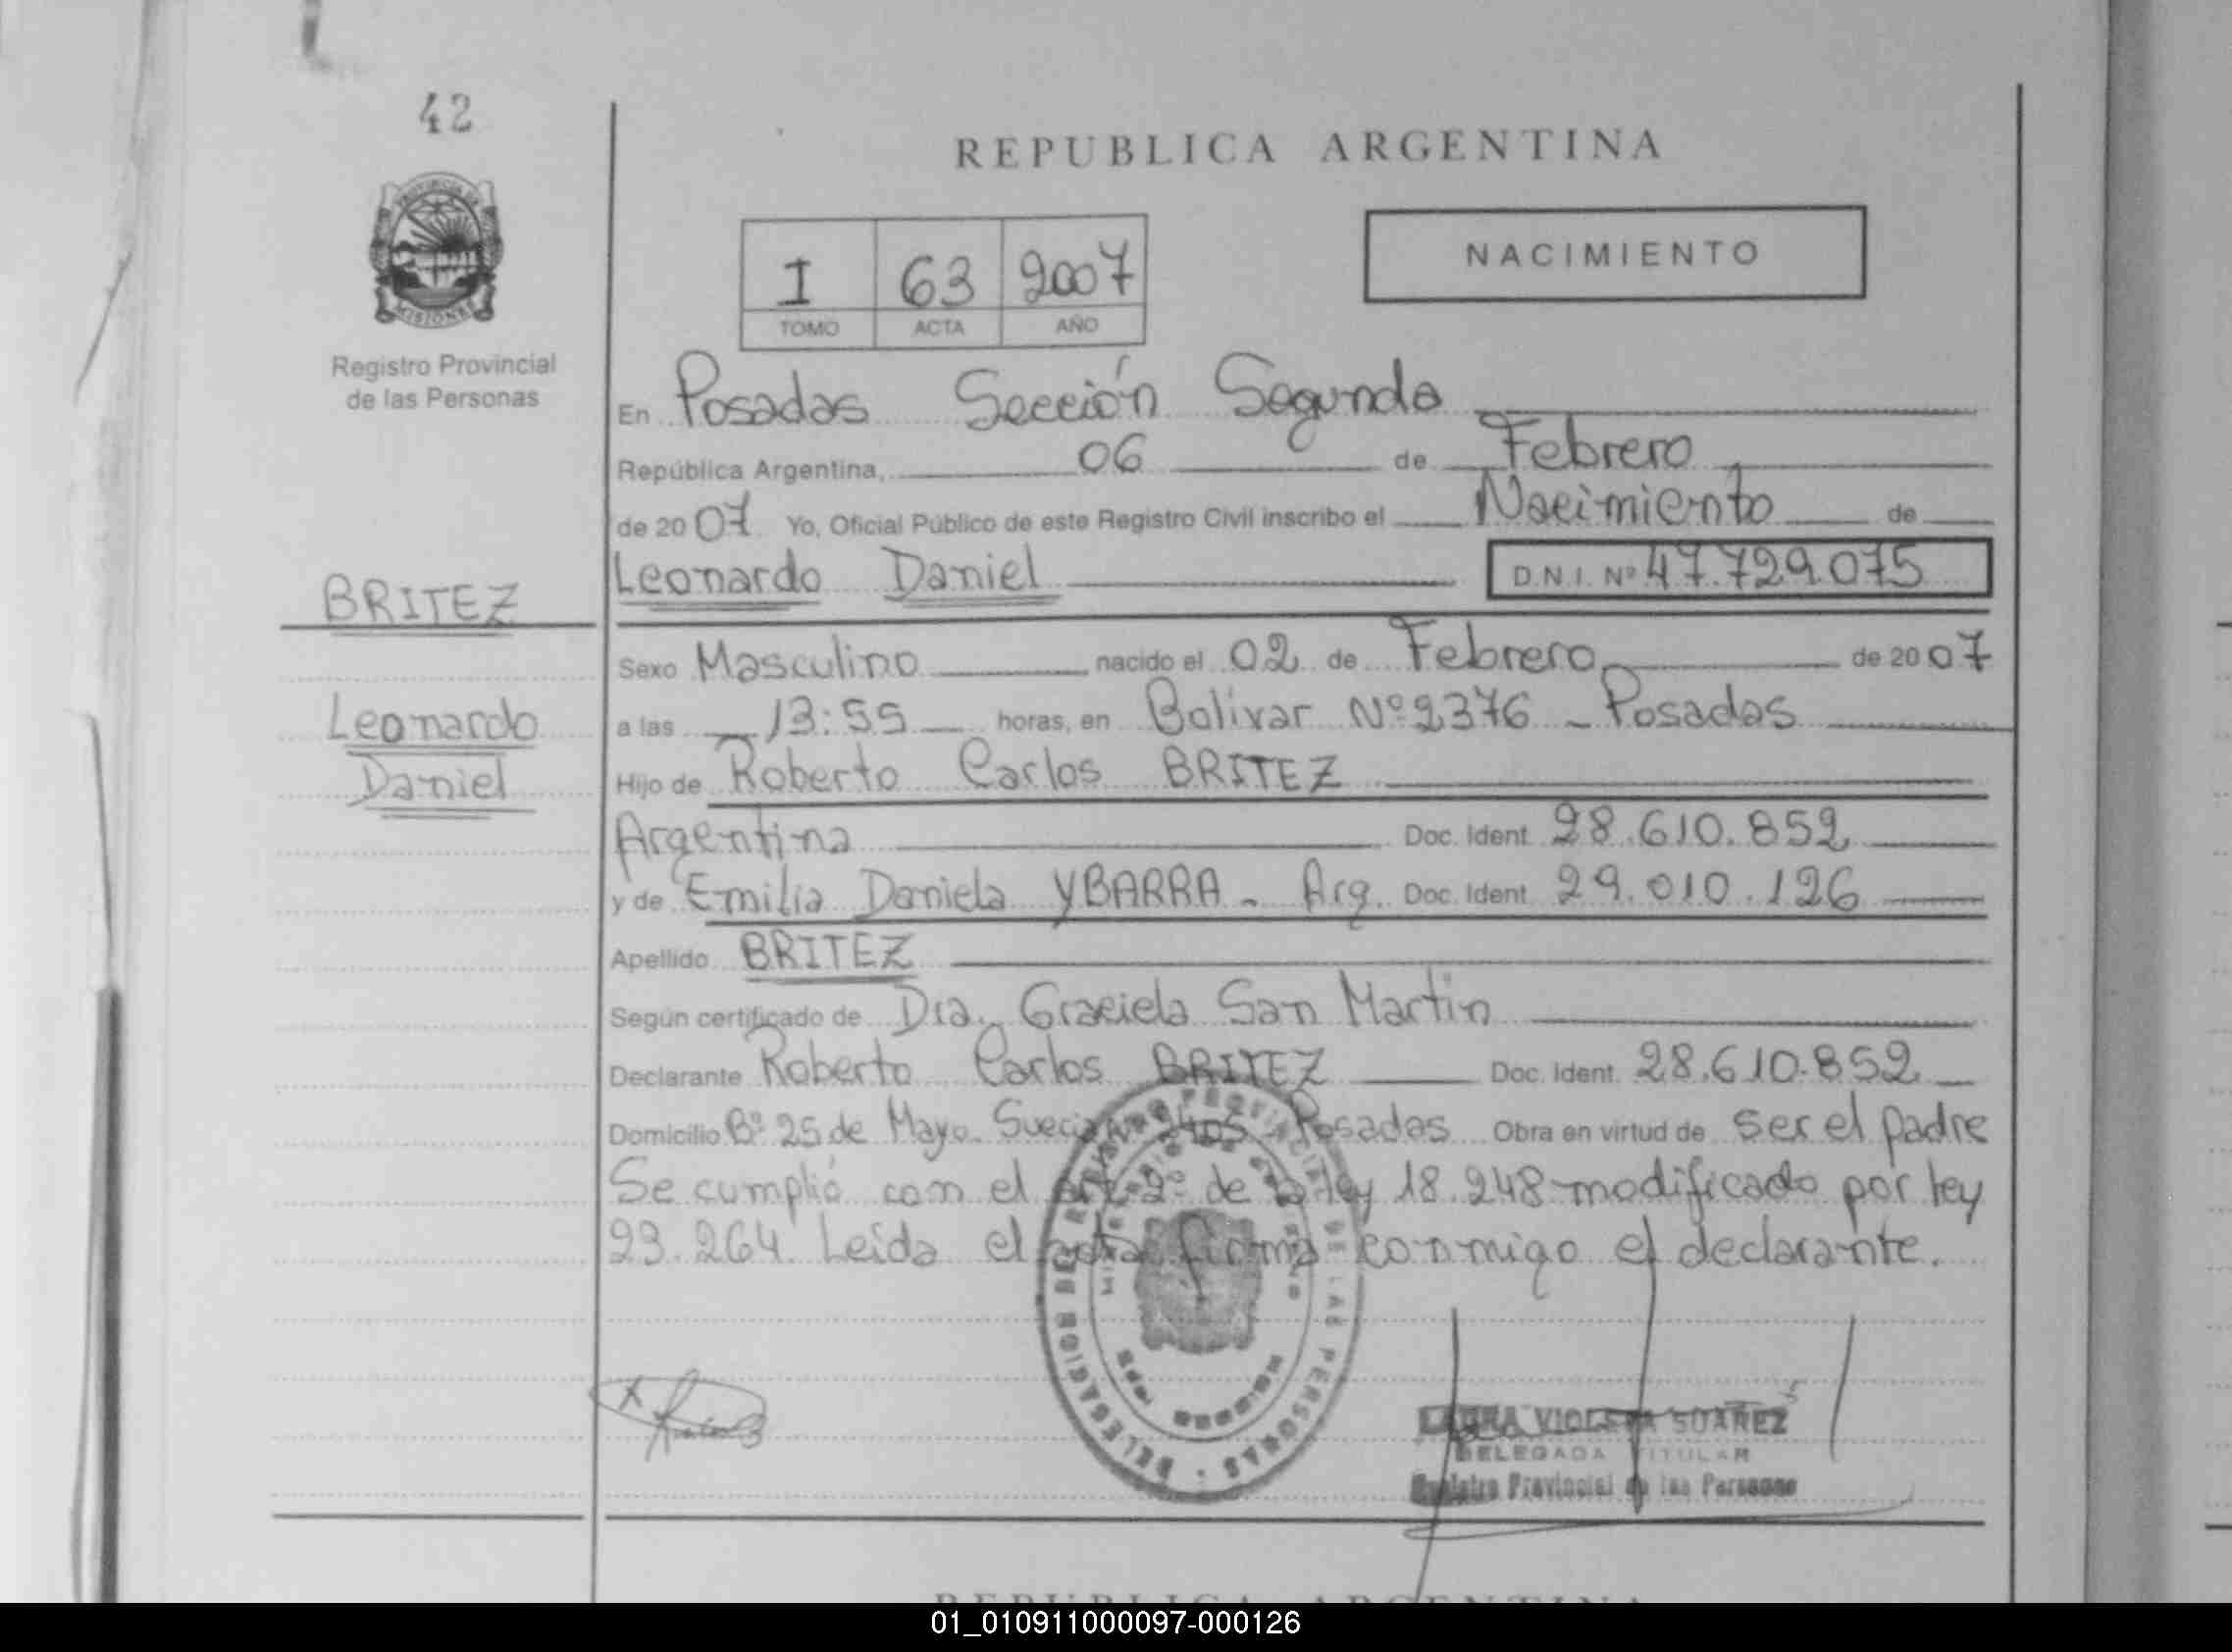 42
REPUBLICA ARGENTINA
NACIMIENTO
I 63 2007
TOMO ACTA AÑO
MISIONES
Registro Provincial
de las Personas
En Posadas Sección Segunda
República Argentina, 06 de Febrero
de 2007 Yo, Oficial Público de este Registro Civil inscribo el Nacimiento de
Leonardo Daniel
D.N.I. Nº 47.729.075
BRITEZ
Leonardo
Daniel
Sexo Masculino nacido el 02 de Febrero de 2007
a las 13:55 horas, en Bolivar Nº 2376 - Posadas
Hijo de Roberto Carlos BRITEZ
Argentina Doc. Ident. 28.610.852
y de Emilia Daniela YBARRA - Arg. Doc. Ident. 29.010.126
Apellido BRITEZ
Según certificado de Dra. Graciela San Martin
Declarante Roberto Carlos BRITEZ Doc. Ident. 28.610.852
Domicilio Bº 25 de Mayo. Suecia Posadas Obra en virtud de ser el padre
Se cumplió con el art. 2º de la ley 18.248 modificado por ley
23.264. Leída el acta firma conmigo el declarante.
DELEGACION DEL REGISTRO PROVINCIAL DE LAS PERSONAS
LAURA VIOLETA SUAREZ
DELEGADA TITULAR
Registro Provincial de las Personas
REPUBLICA ARGENTINA
01_010911000097-000126